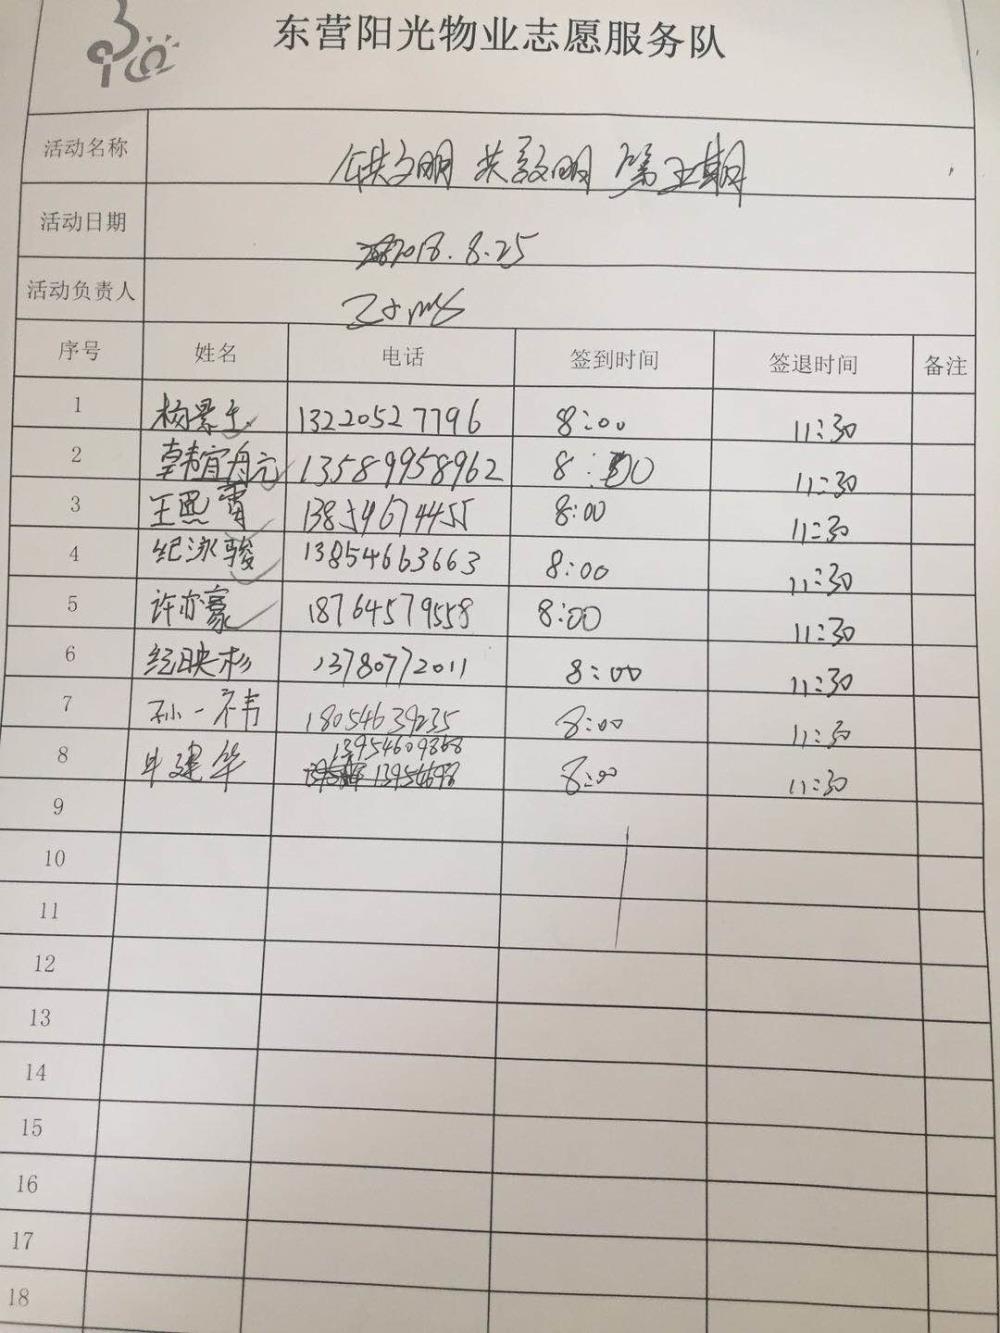 东营阳光物业志愿服务队
活动名称 供文明 共文明 第五期
活动日期 2018.8.25
活动负责人
序号 姓名 电话 签到时间 签退时间 备注
1 13220527796 8:00 11:30
2 韩宜丹元 13589958962 8:00 11:30
3 王熙霄 13854674455 8:00 11:30
4 纪泳骏 13854663663 8:00 11:30
5 许亦豪 18764579558 8:00 11:30
6 纪映杉 13780772011 8:00 11:30
7 孙一韦 18054639235 8:00 11:30
8 牛建华 13954609868 8:00 11:30
9
10
11
12
13
14
15
16
17
18